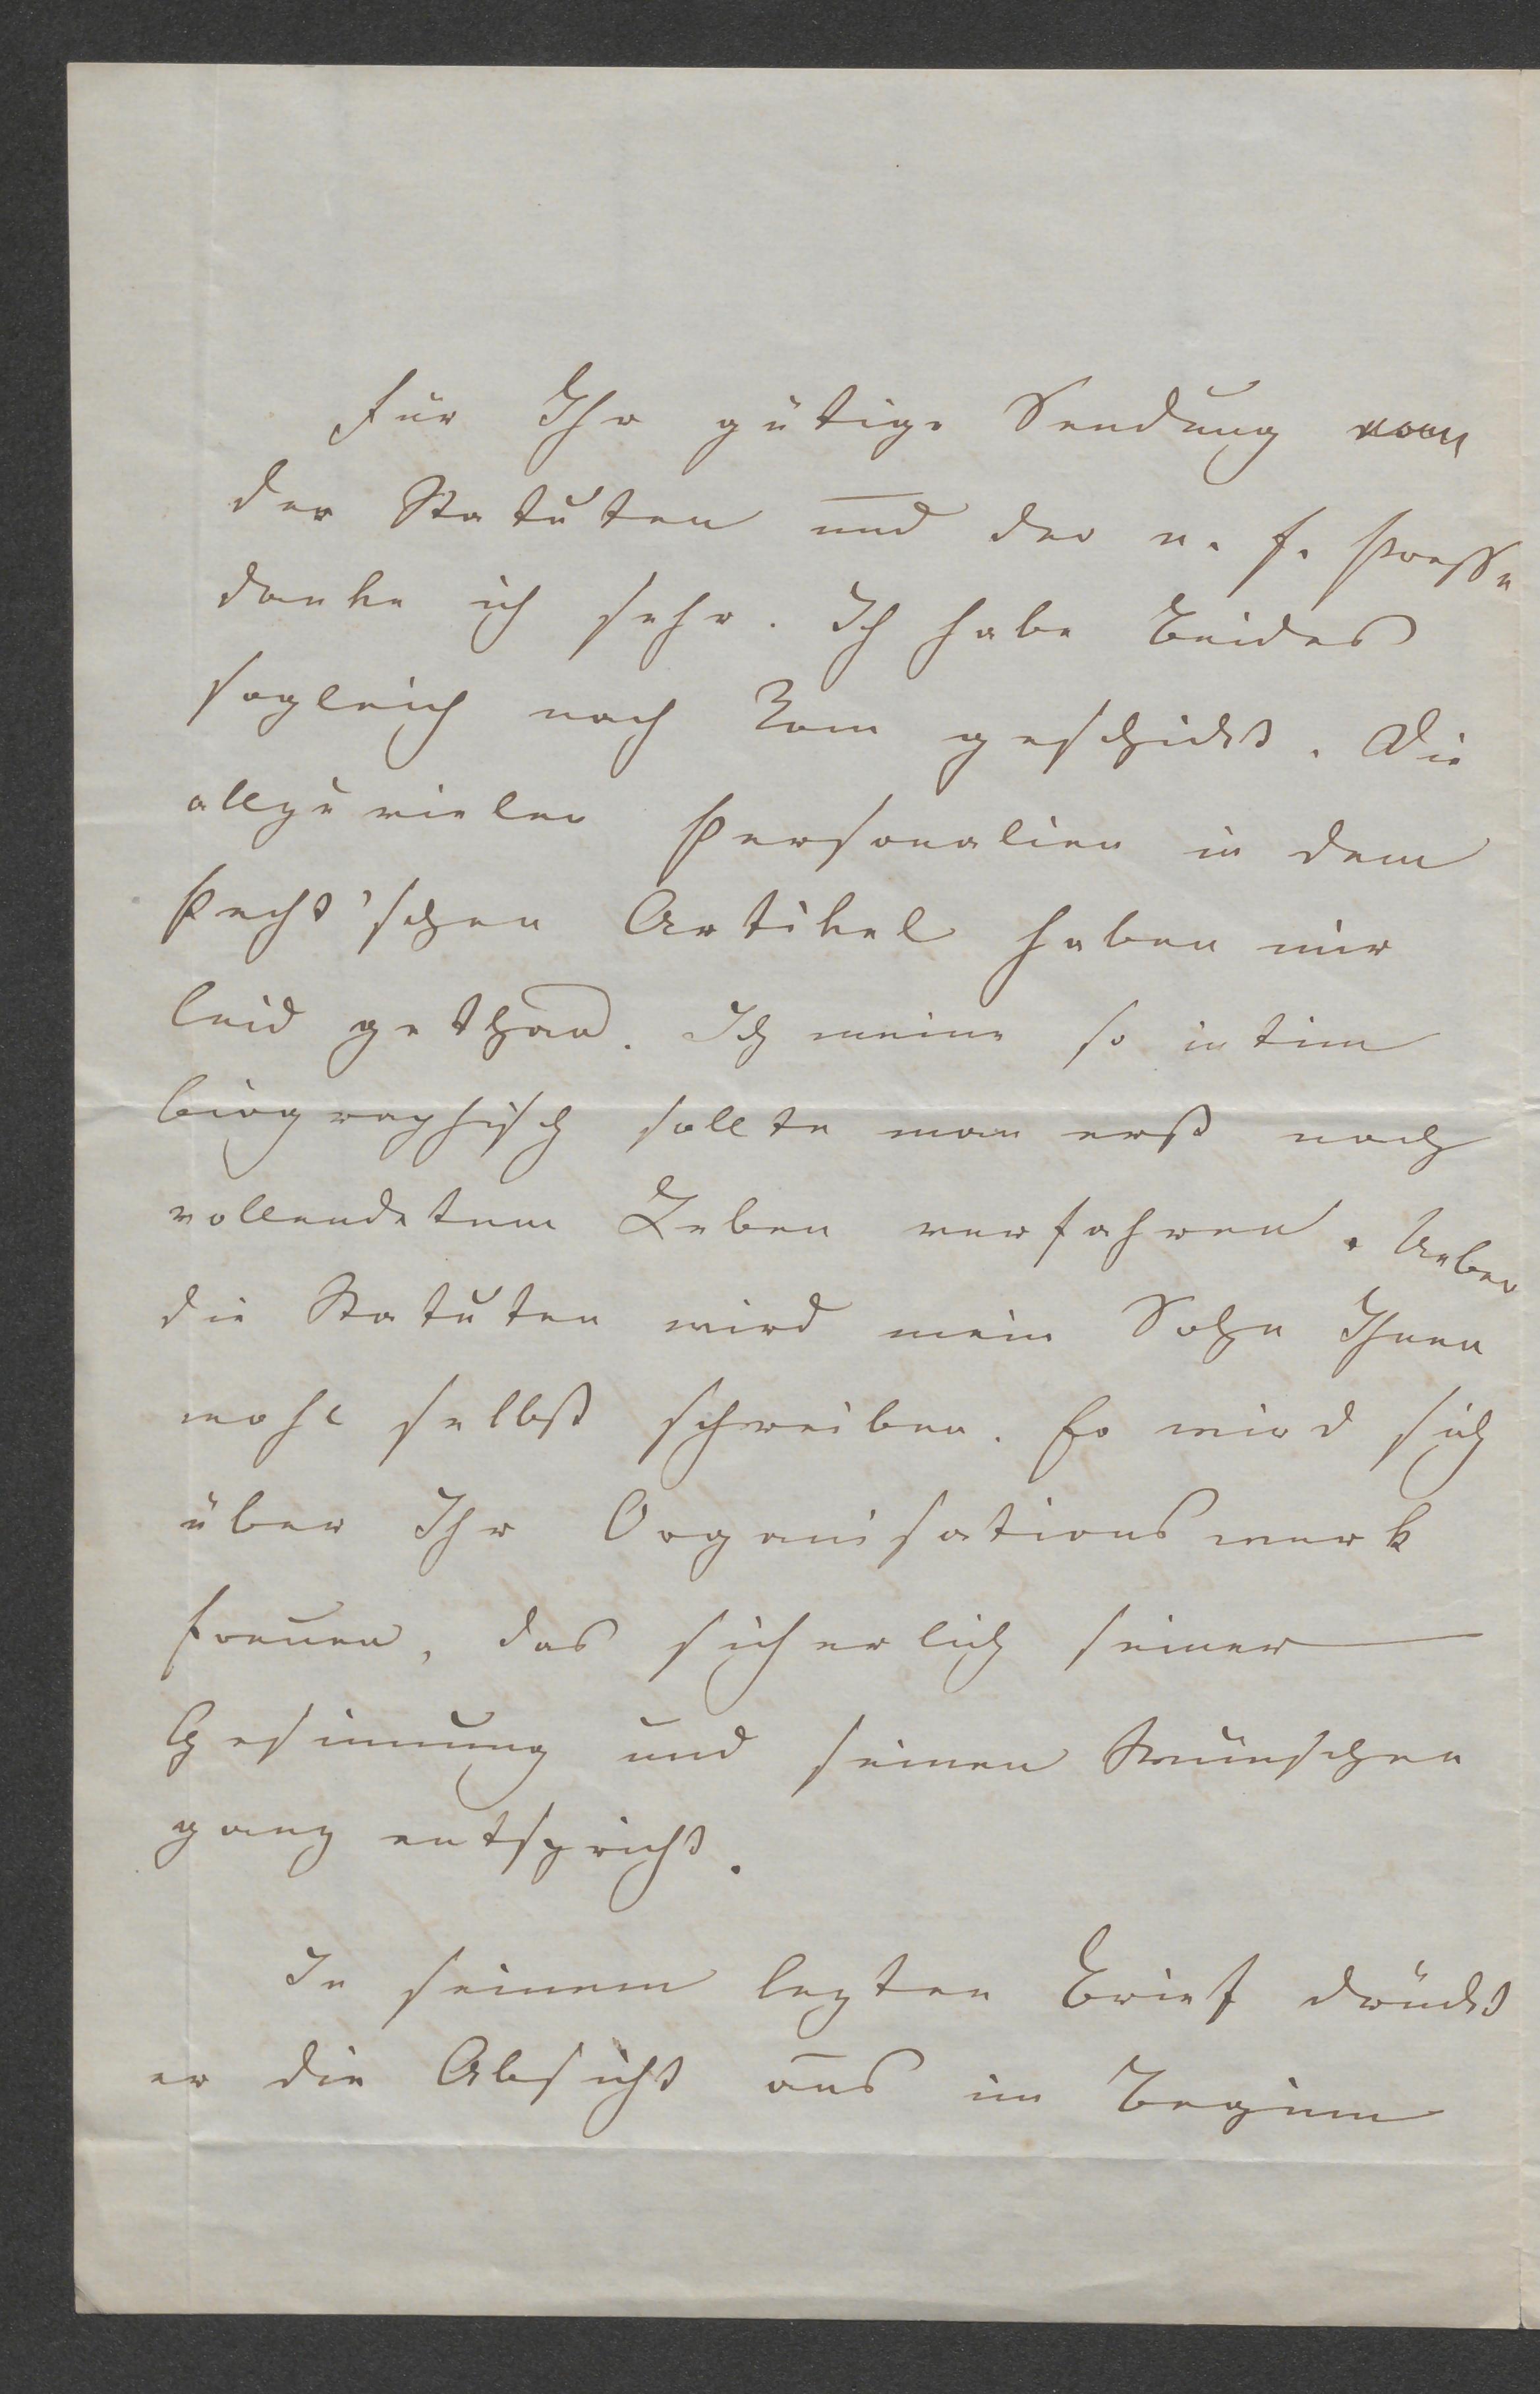 Für Ihre gütige Sendung
der Statuten und der n. f. Presse
danke ich sehr. Ich habe Beides
sogleich nach Rom geschickt. Die
allzuvielen Personalien in dem
Pecht'schen Artikel haben mir
leid gethan. Ich meine so intim
biographisch sollte man erst nach
vollendetem Leben verfahren. Ueber
die Statuten wird mein Sohn Ihnen
wohl selbst schreiben. Er wird sich
über Ihr Organisationswerk
freuen, das sicherlich seiner
Gesinnung und seinen Wünschen
ganz entspricht.
In seinem lezten Brief drückt
er die Absicht aus im Beginn